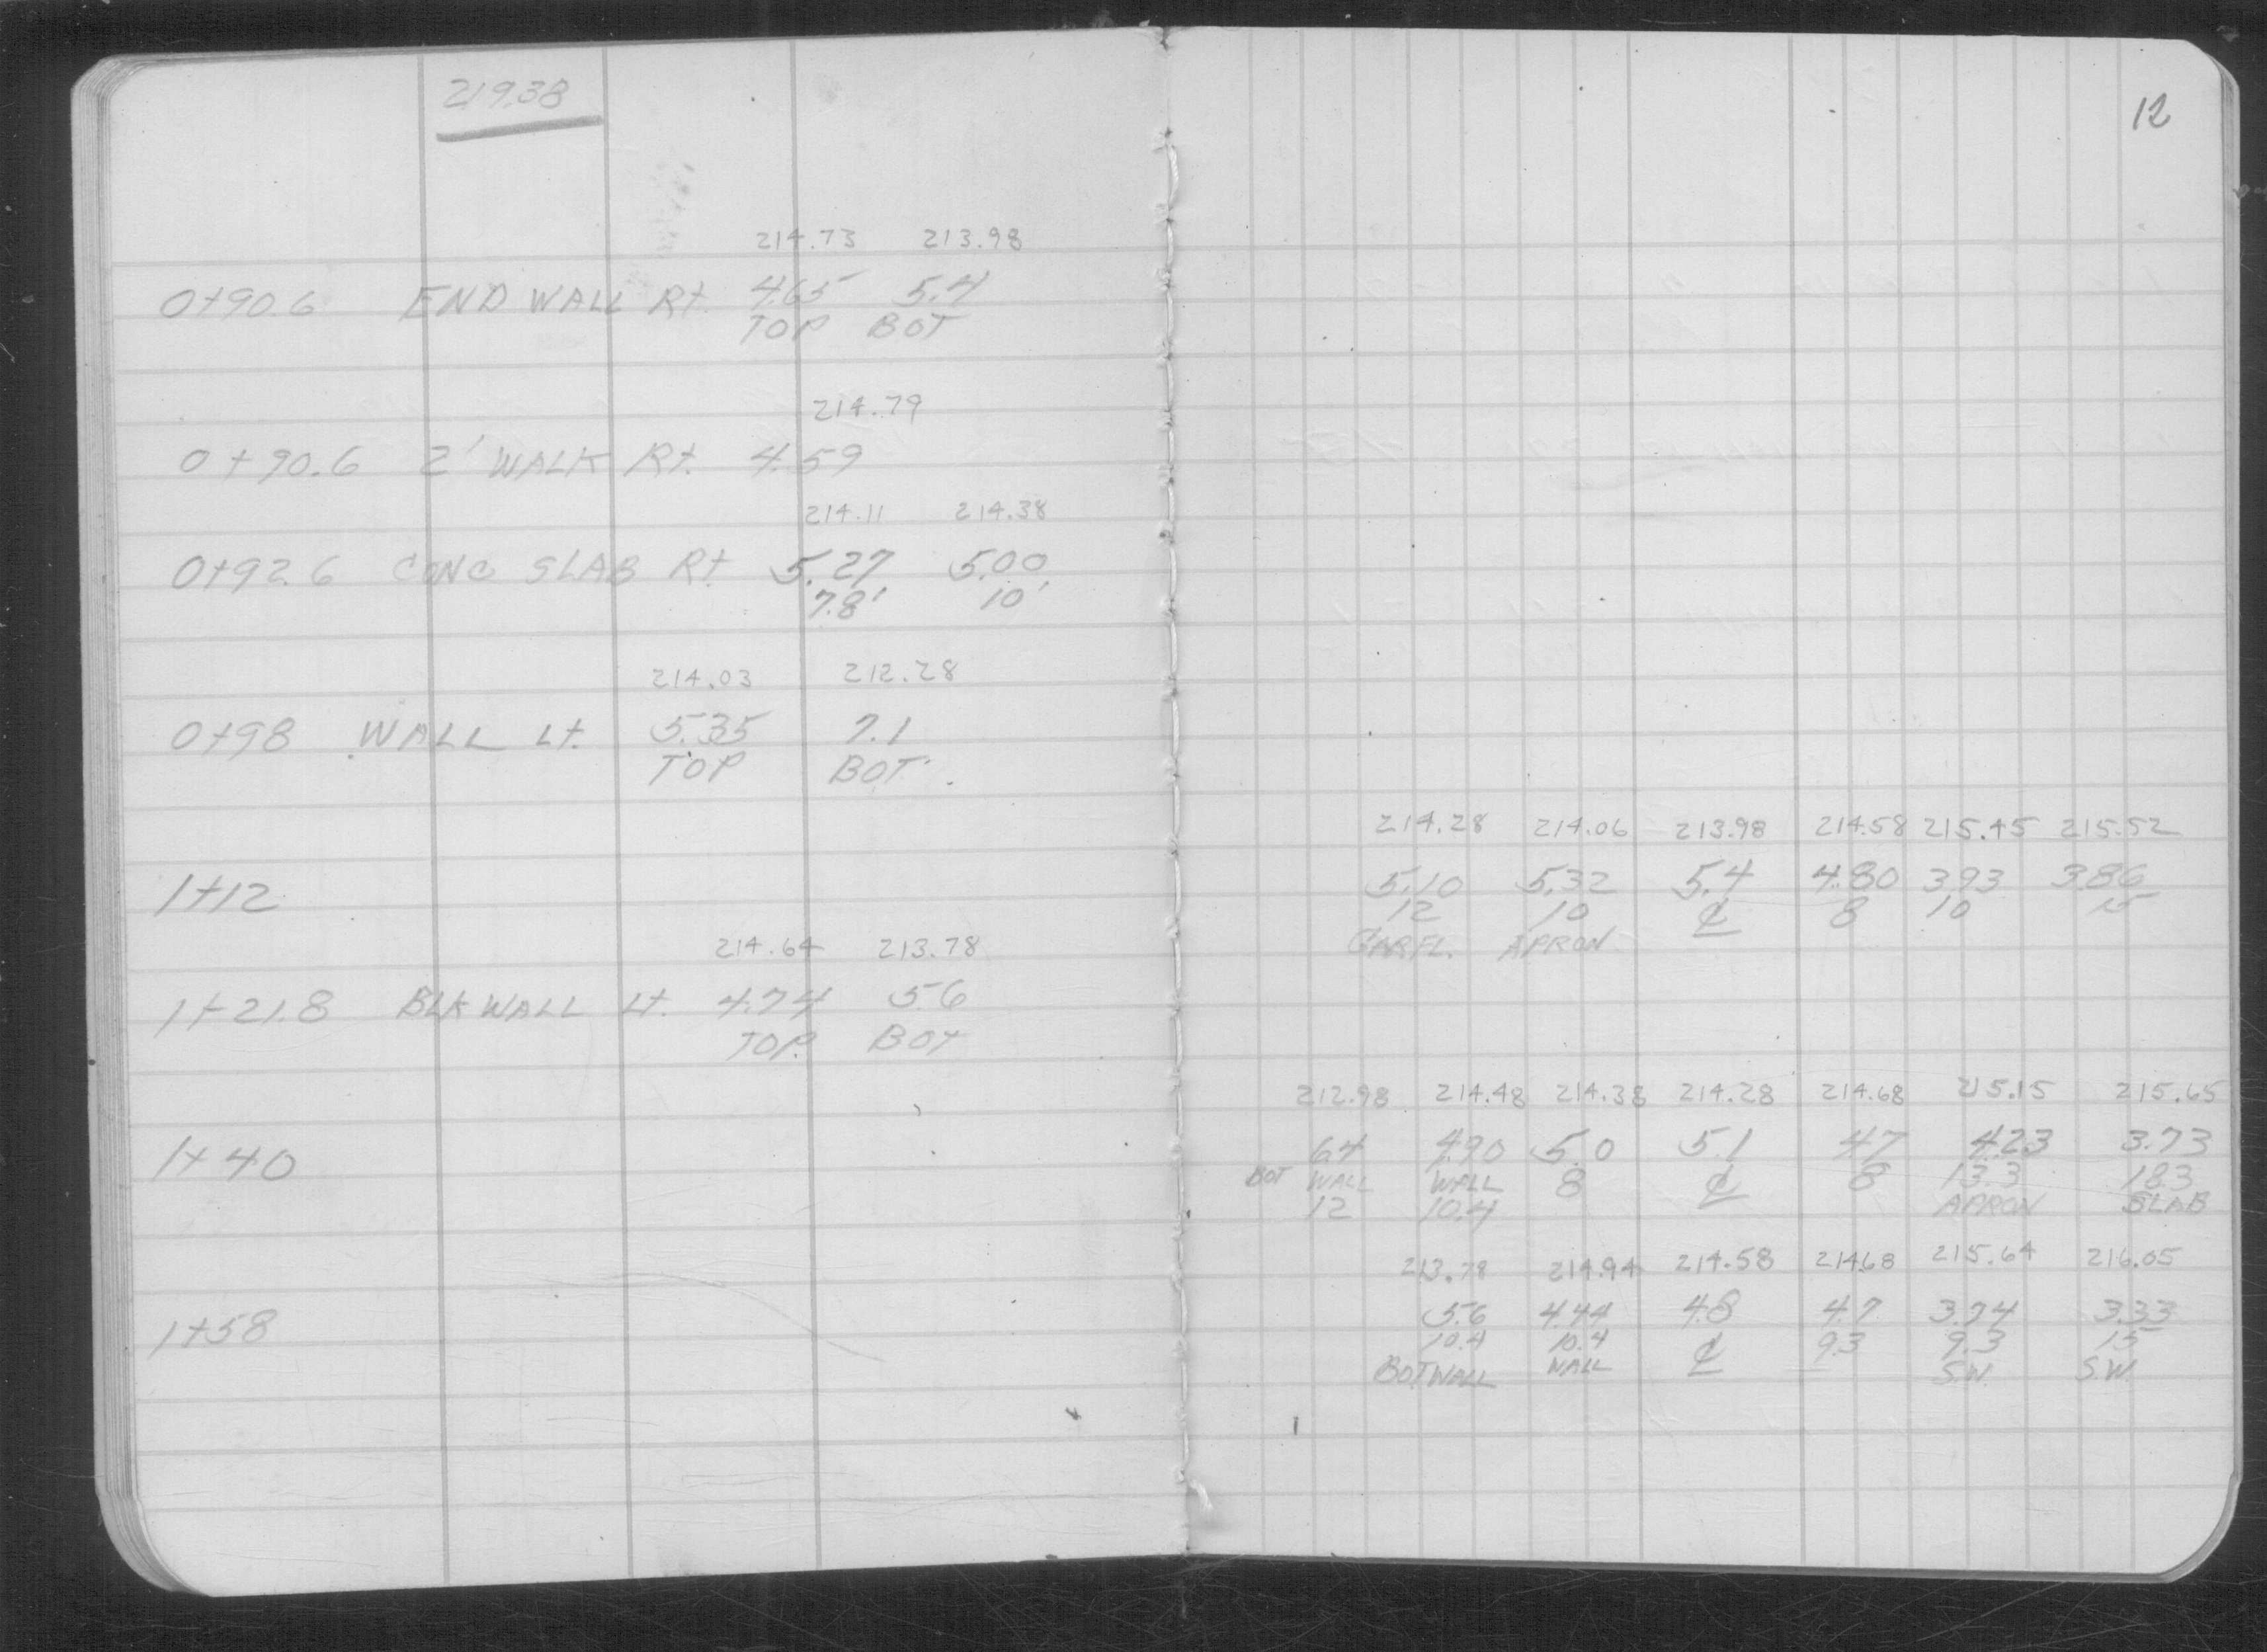 219.38
214.73 213.98
0+90.6 END WALL Rt. 4.65 5.4
TOP BOT
214.79
0+90.6 2' WALK Rt. 4.59
214.11 214.38
0+92.6 CONC SLAB Rt 5.27 5.00
7.8' 10'
214.03 212.28
0+98 WALL Lt. 5.35 7.1
TOP BOT
1+12
214.64 213.78
1+21.8 BLK WALL Lt. 4.74 5.6
TOP BOT
1+40
1+58
12
214.28 214.06 213.98 214.58 215.45 215.52
5.10 5.32 5.4 4.80 3.93 3.86
12 10 ℄ 8 10 15
GAR FL. APRON
212.98 214.48 214.38 214.28 214.68 215.15 215.65
6.4 4.90 5.0 5.1 4.7 4.23 3.73
BOT WALL WALL 8 ℄ 8 13.3 18.3
12 10.4 APRON SLAB
213.78 214.94 214.58 214.68 215.64 216.05
5.6 4.44 4.8 4.7 3.74 3.33
10.4 10.4 ℄ 9.3 9.3 15
BOT WALL WALL S.W. S.W.